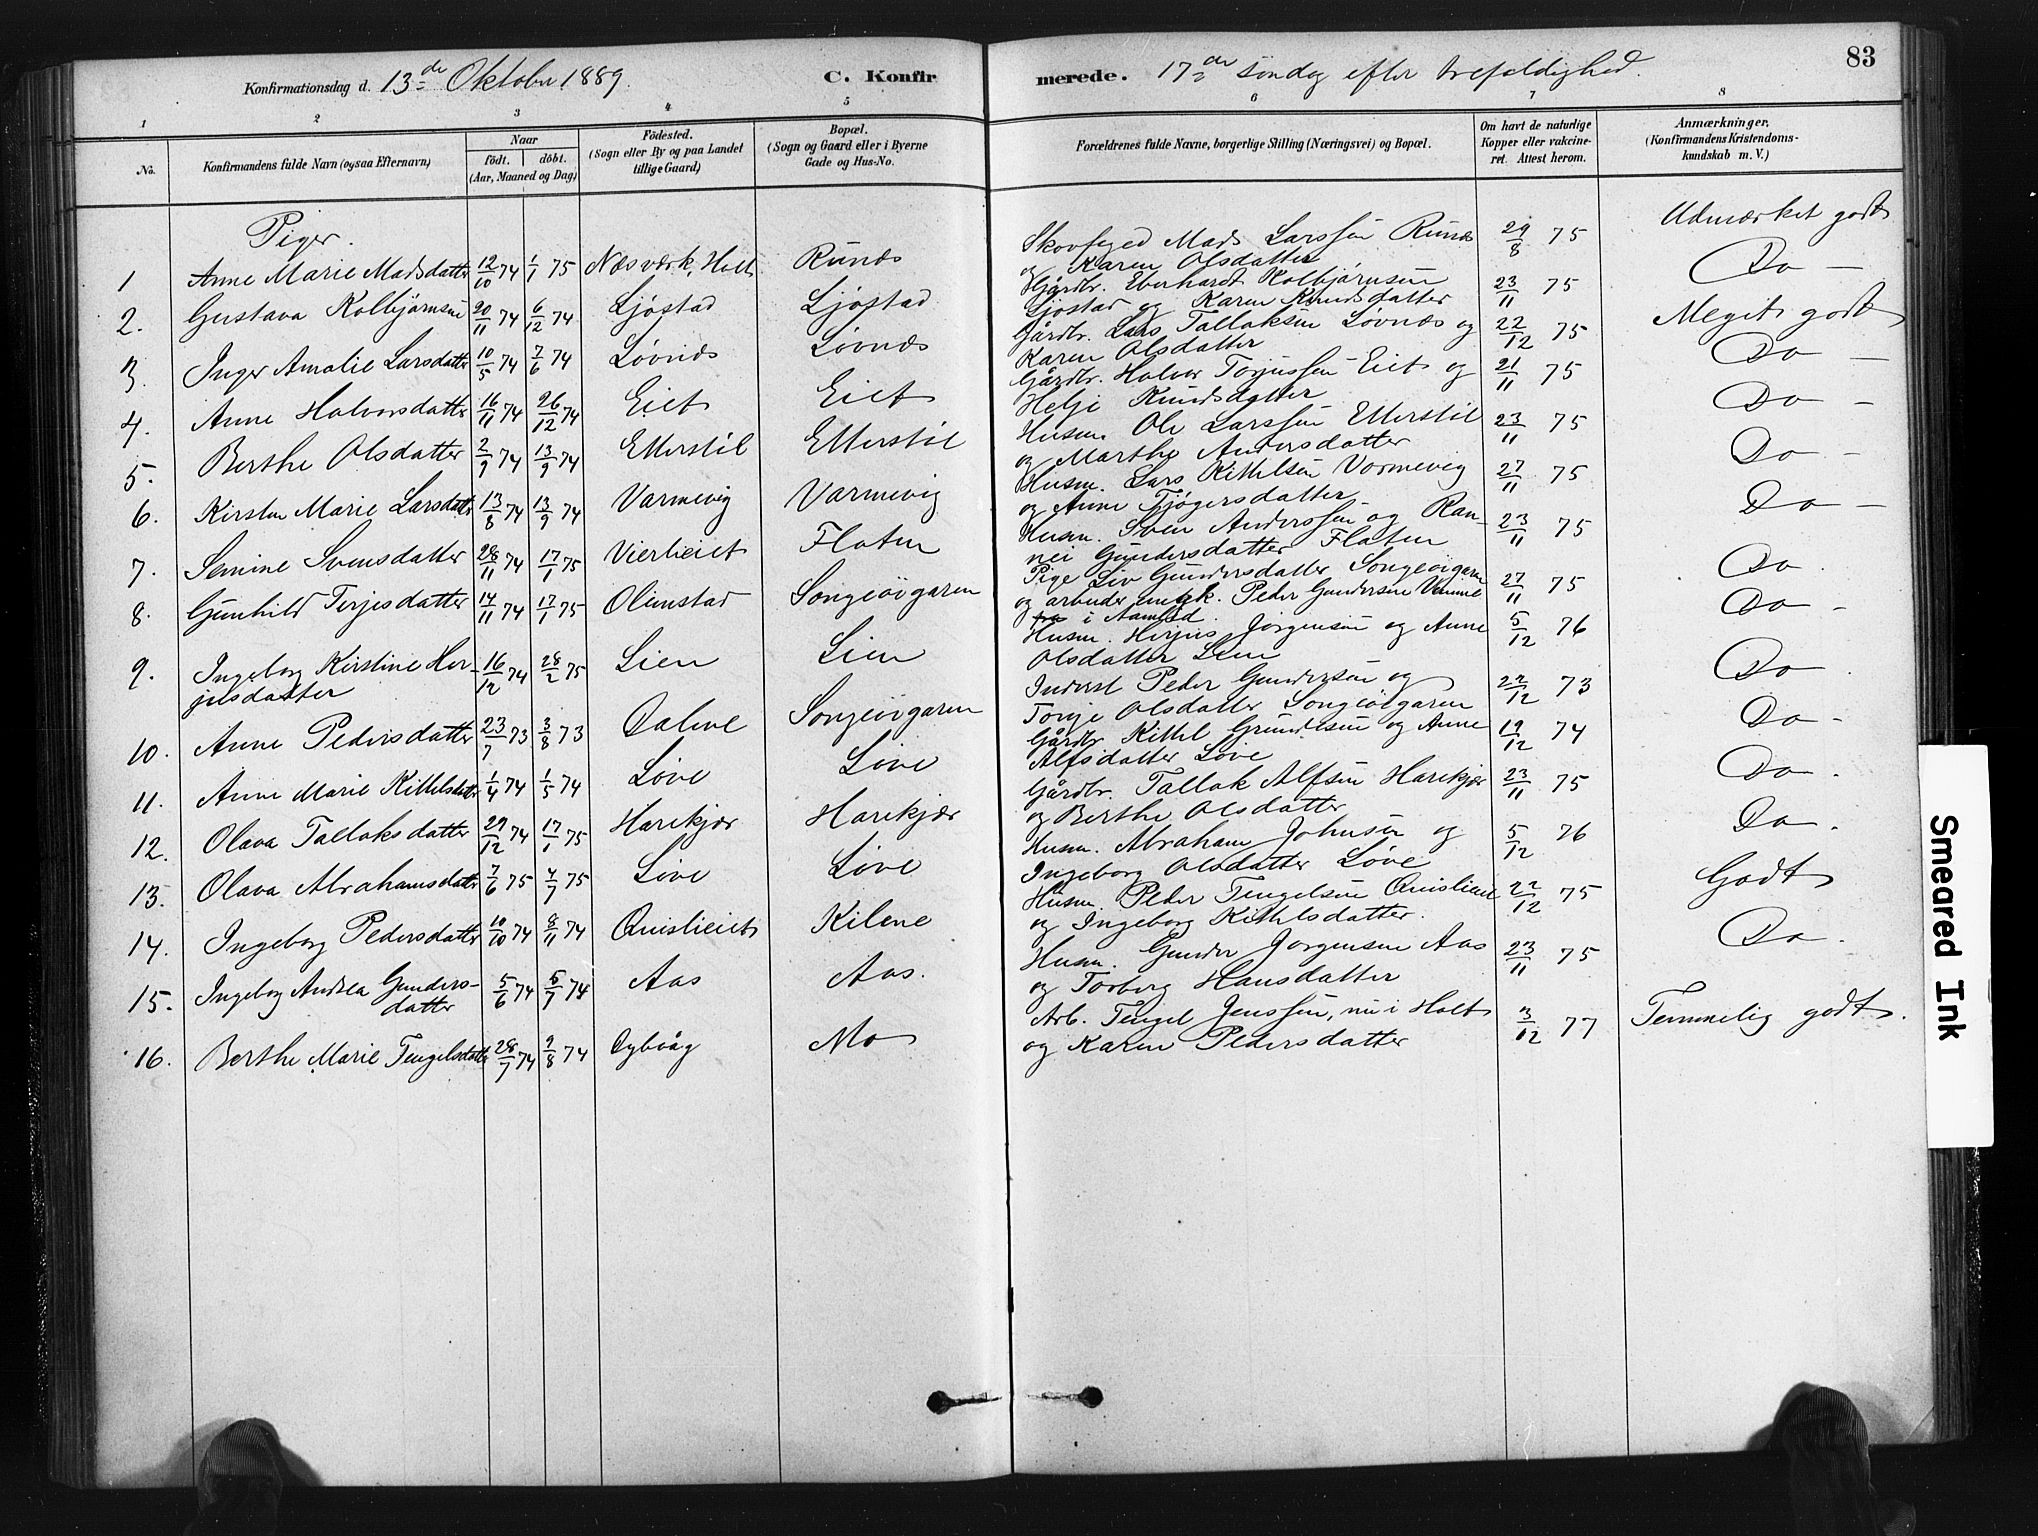 83
Konfirmationsdag d. 13de Oktober 1889. C. Konfirmerede. 17de søndag efter trefoldighed.
1 2 3 4 5 6 7 8
No. Konfirmandens fulde Navn (ogsaa Efternavn) Naar födt. döbt. (Aar, Maaned og Dag) Födested. (Sogn eller By og paa Landet tillige Gaard) Bopæl. (Sogn og Gaard eller i Byerne Gade og Hus-No. Forældrenes fulde Navne, borgerlige Stilling (Næringsvei) og Bopæl. Om havt de naturlige Kopper eller vakcineret. Attest herom. Anmærkninger. (Konfirmandens Kristendomskundskab m. V.)
Piger.
1 Anne Marie Madsdatter 12/10 74 1/1 75 Næsværk, Holt Runæs Skovfoged Mads Larssen Runæs og Karen Olsdatter 29/8 75 Udmærket godt
2. Gustava Kolbjørnsen 20/11 74 6/12 74 Ljøstad Ljøstad Gårdbr. Eberhardt Kolbjørnsen Ljøstad og Karen Knudsdatter 23/11 75 Do —
3. Inger Amalie Larsdatter 10/5 74 7/6 74 Løvnæs Løvnæs Gårdbr. Lars Tallaksen Løvnæs og Karen Olsdatter 22/12 75 Meget godt
4. Anne Halvorsdatter 16/11 74 26/12 74 Eiet Eiet Gårdbr. Halvor Torjussen Eiet og Helje Knudsdatter 21/11 75 Do —
5. Berthe Olsdatter 2/9 74 13/9 74 Etterstøl Etterstøl Husm. Ole Larssen Etterstøl og Marthe Andersdatter 23/11 75 Do —
6. Kirsten Marie Larsdatter 13/8 74 13/9 74 Varmevig Varmevig Husm. Lars Kittelsen Vormevig og Anne Tjøgersdatter 27/11 75 Do —
7. Semine Svensdatter 28/11 74 17/1 75 Vierlieiet Flaten Husm. Sven Anderssen og Rannei Gundersdatter Flaten 23/11 75 Do —
8. Gunhild Terjesdatter 14/11 74 17/1 75 Olimstad Songeøigaren Pige Liv Gundersdatter Songeøigaren og arbeider Peder Gundersen Vimme i Aamlid. 27/11 75 Do.
9. Ingeborg Kirstine Herjusdatter 16/12 74 28/2 75 Lien Lien Husm. Herjus Jørgensen og Anne Olsdatter Lien 5/12 76 Do —
10. Anne Pedersdatter 23/7 73 3/8 73 Dalene Songeøigaren Inderst Peder Gundersen og Tonje Olsdatter Songeøigaren 22/12 73 Do.
11. Anne Marie Kittelsdatter 1/4 74 1/5 74 Løve Løve Gårdbr. Kittel Gundesen og Anne Alfsdatter Løve 19/12 74 Do —
12. Olava Tallaksdatter 29/12 74 17/1 75 Harekjær Harekjær Gårdbr. Tallak Alfsen Harekjær og Berthe Olsdatter 23/11 75 Do.
13. Olava Abrahamsdatter 7/6 75 4/7 75 Løve Løve Husm. Abraham Johnsen og Ingeborg Olsdatter Løve 5/12 76 Do.
14. Ingeborg Pedersdatter 10/10 74 8/11 74 Qvislieiet Kilene Husm. Peder Tengelsen Qvislieiet og Ingeborg Kittelsdatter. 22/12 75 Godt
15. Ingeborg Andrea Gundersdatter 5/6 74 5/7 74 Aas Aas. Husm. Gunder Jørgensen Aas og Torborg Hansdatter 23/11 75 Do.
16. Berthe Marie Tengelsdatter 28/7 74 9/8 74 Dybvåg Mo Arb. Tengel Jenssen, nu i Holt og Karen Pedersdatter 3/12 77 Temmelig godt.
Smeared Ink